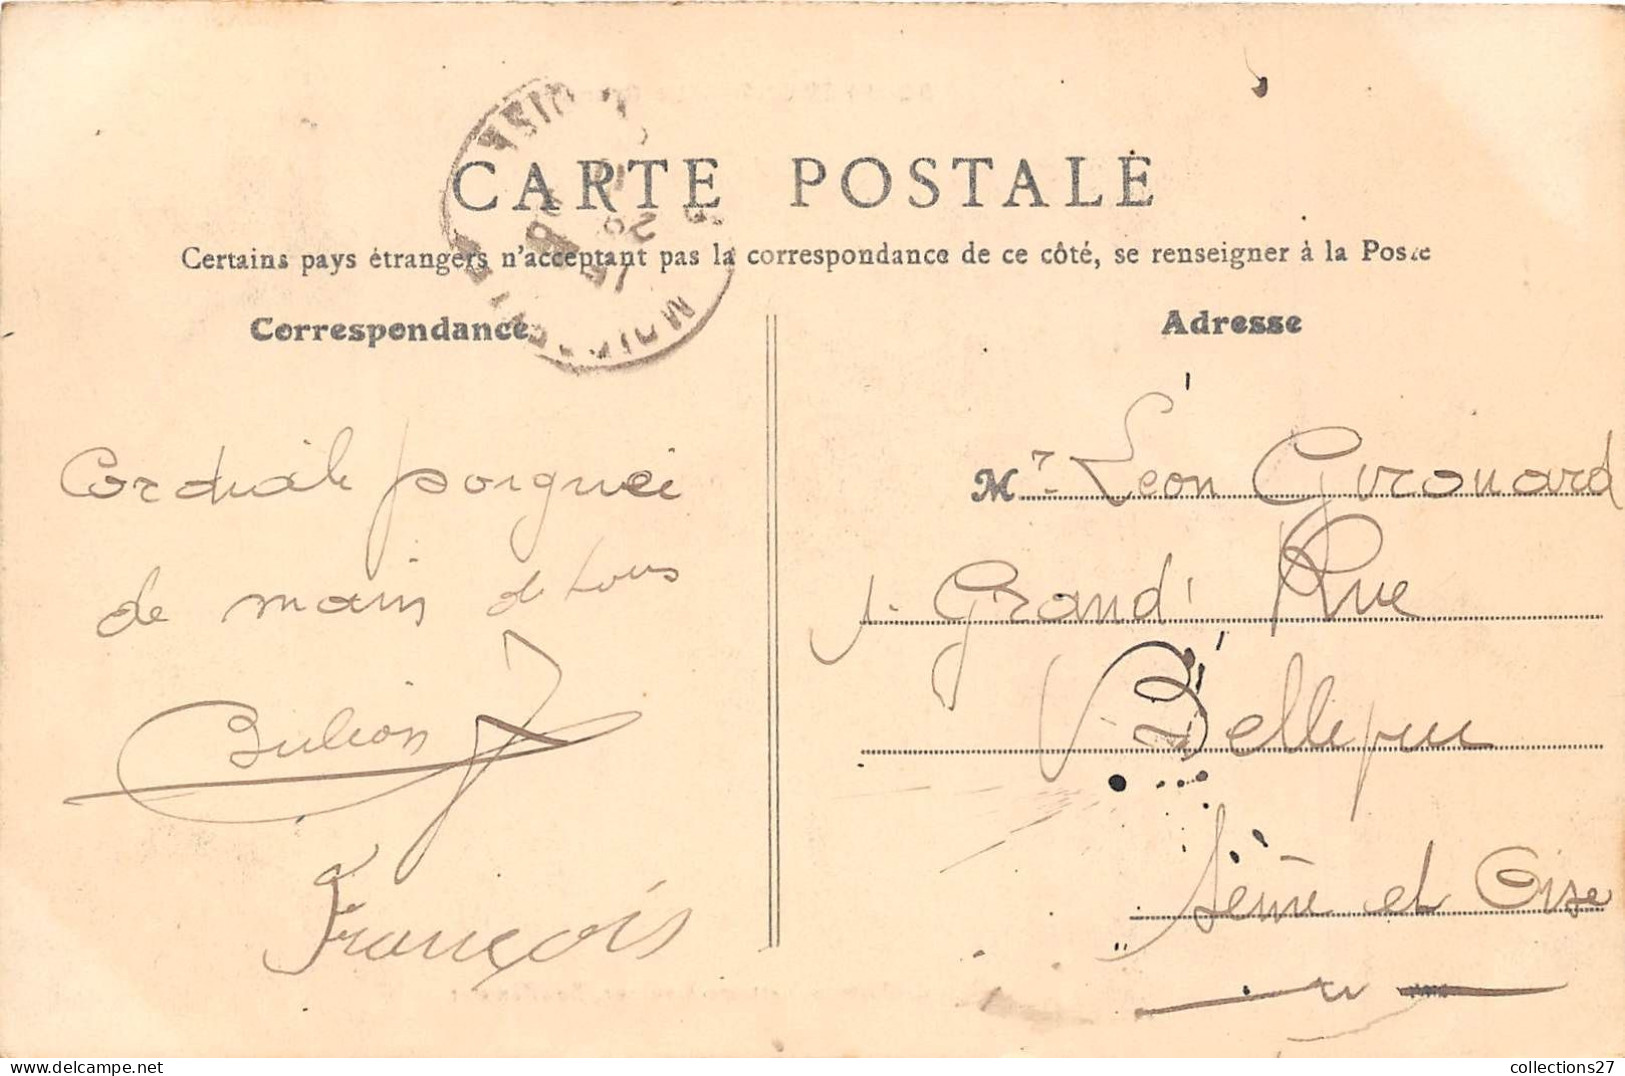 CARTE POSTALE
Certains pays étrangers n'acceptant pas la correspondance de ce côté, se renseigner à la Poste
Correspondance
Adresse
Cordiale poignée
de main de tous
Bulion
François
Mr Léon Girouard
1. Grand' Rue
Bellevue
Seine et Oise
collections27